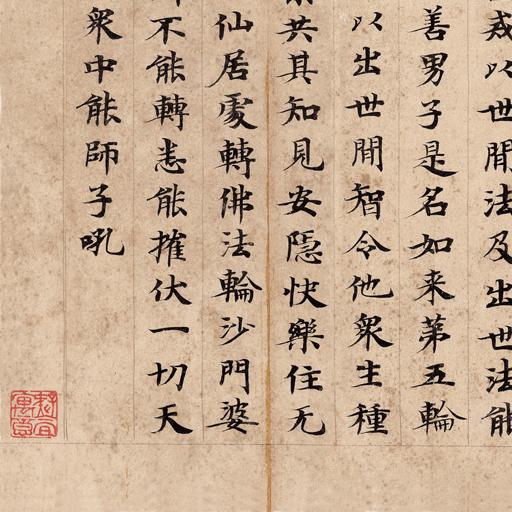 戎以世間法及出世法能
善男子是名如来第五輪
以出世間智令他眾生種
共其知見安隱快樂住无
仙居處轉佛法輪沙門婆
不能轉恚能摧伏一切天
眾中能師子吼